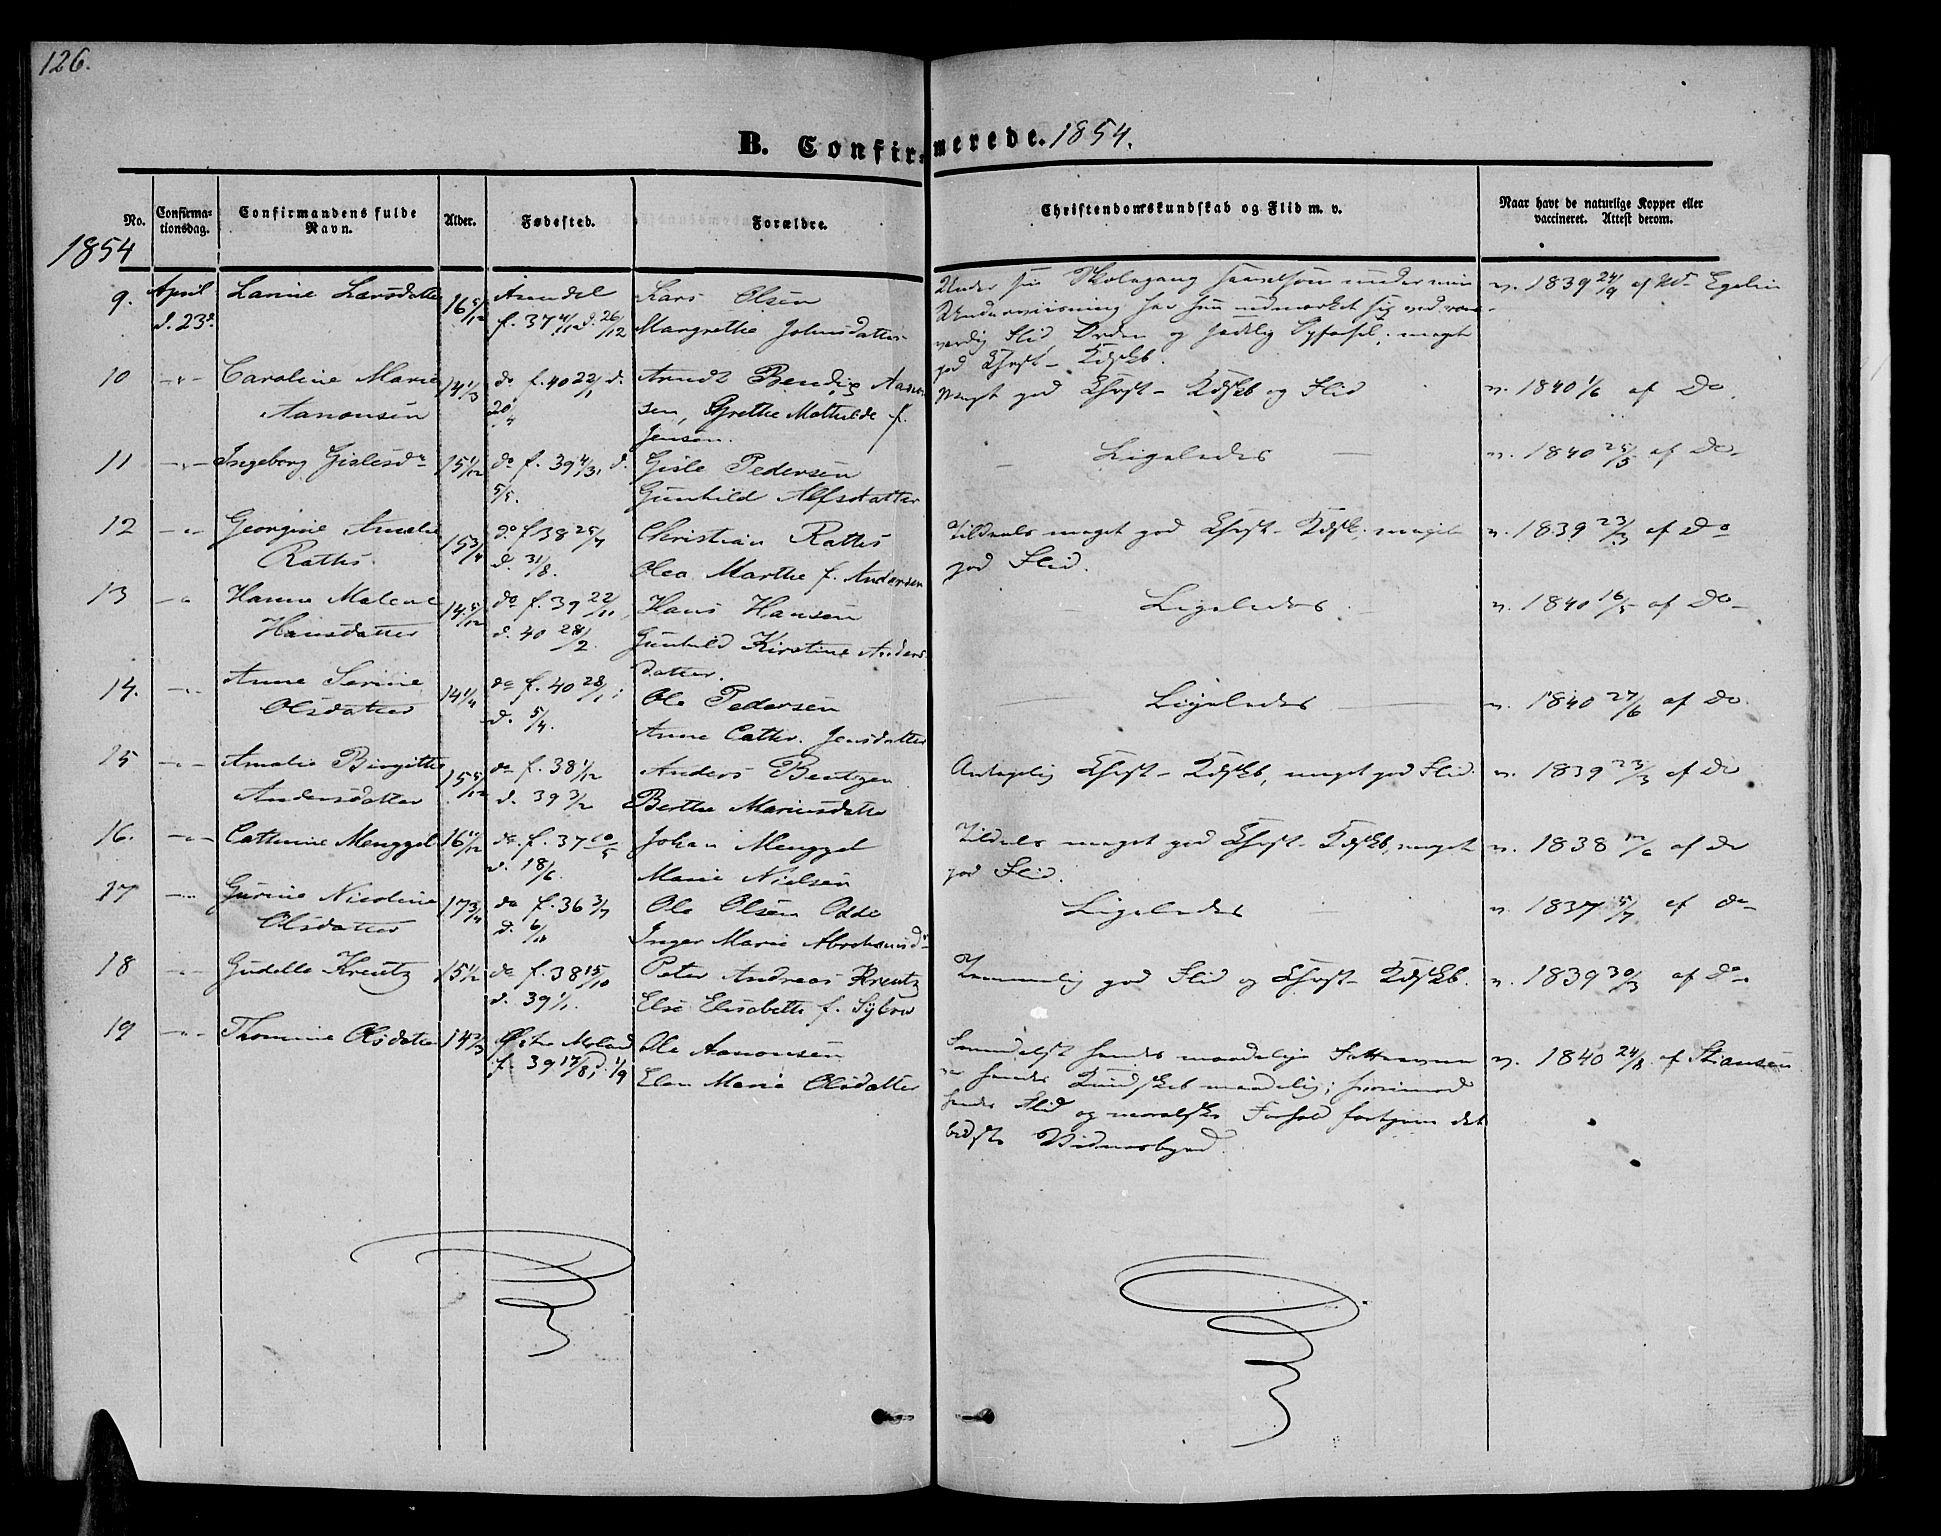 126.
B. Confirmerede. 1854.
No.
Confirmationsdag.
Confirmandens fulde Navn.
Alder.
Fødested.
Forældre.
Christendomskundskab og Flid m. v.
Naar havt de naturlige Kopper eller vaccineret. Attest derom.
1854
9. April d. 23de Larine Larsdatter 16 5/12 Arendal
Lars Olsen
Margrethe Johnsdatter
Under sin Skolegang saavelsom under min
Underviisning har hun udmærket sig ved
Flid, Orden og sædelig Opførsel; meget
god Chrst- Kdskb.
v. 1839 24/9 af
10 Caroline Marie Aanonsen 14 1/3 do f. 40 22/1 d. 20/4
Arndt Bendix Aanon-
sen, Grethe Mathilde f.
Jensen.
Meget god Chrst- Kdskb og Flid
v. 1840 1/6 af Do
11 Ingeborg Gislesdr 15 1/12 do f. 39 4/3, d. 5/5.
Gisle Pedersen
Gunhild Alfsdatter
Ligeledes
v. 1840 25/5 af Do
12 Georgine Amalie Rattes 15 3/4 do f. 38 25/7 d. 31/8.
Christian Rattes
Olea Marthe f. Andersen
Tildeels meget god Chrst- Kdskb. meget
god Flid.
v. 1839 23/3 af Do
13 Hanne Malene Hansdatter 14 5/12 do f. 39 22/11, d. 40 28/2.
Hans Hansen
Gunhild Kirstine Anders-
datter.
Ligeledes
v. 1840 16/5 af Do
14. Anne Serine Olsdatter 14 1/4 do f. 40 28/1; d. 5/4.
Ole Pedersen
Anne Cathr. Jensdatter
Ligeledes
v. 1840 27/6 af Do
15 Amalie Birgitte Andersdatter 15 5/12 do f. 38 1/12 d. 39 3/2
Anders Bentzen
Berthe Mariusdatter
Antagelig Chrst- Kdskb, meget god Flid.
v. 1839 23/3 af Do
16. Cathrine Menggel do f. 37 d. 18/6.
Johan Menggel
Marie Nielsen
Tildeels meget god Chrst- Kdskb, meget
god Flid.
v. 1838 af do
17 Gurine Nicoline Olsdatter 17 3/4 do f. 36 3/7 d.
Ole Olsen Odde
Inger Marie Abrahamsdr
Ligeledes
v. 1837 af do
18 Gudelle Kreutz 15 1/2 do f. 38 15/10 d. 39 1/1.
Peter Andreas Kreutz
Else Elisabeth f.
Temmelig god Flid og Chrst- Kdskb.
v. 1839 30/3 af Do
19 Thomine Olsdatter 14 2/3 Østre Moland f. 39 17/8, d. 1/9
Ole Aanonsen
Elen Marie Olsdatter
hendes maadelige Fatteevne
er hendes Kundskab maadelig; hvorimod
hendes Flid og moralske Forhold fortjene det
bedste Vidnesbyrd.
v. 1840 24/8 af Stiansen